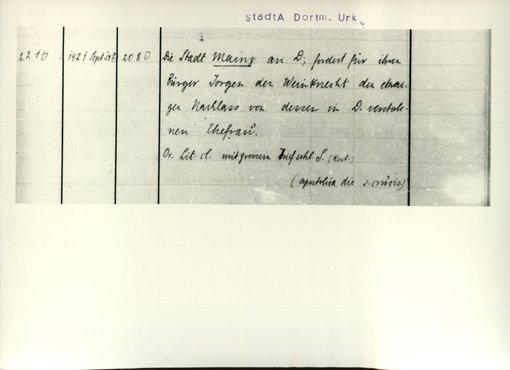 StadtA Dortm. Urk.
2210 1421 Sept 14 2080 Die Stadt Mainz an D, fordert für ihren
Bürger Jorgen den Weinknecht den etwai-
gen Nachlass von dessen in D. verstorbe-
nen Ehefrau.
Or. Lit. cl. mit grossem S. (Rest.)
die s. crucis)